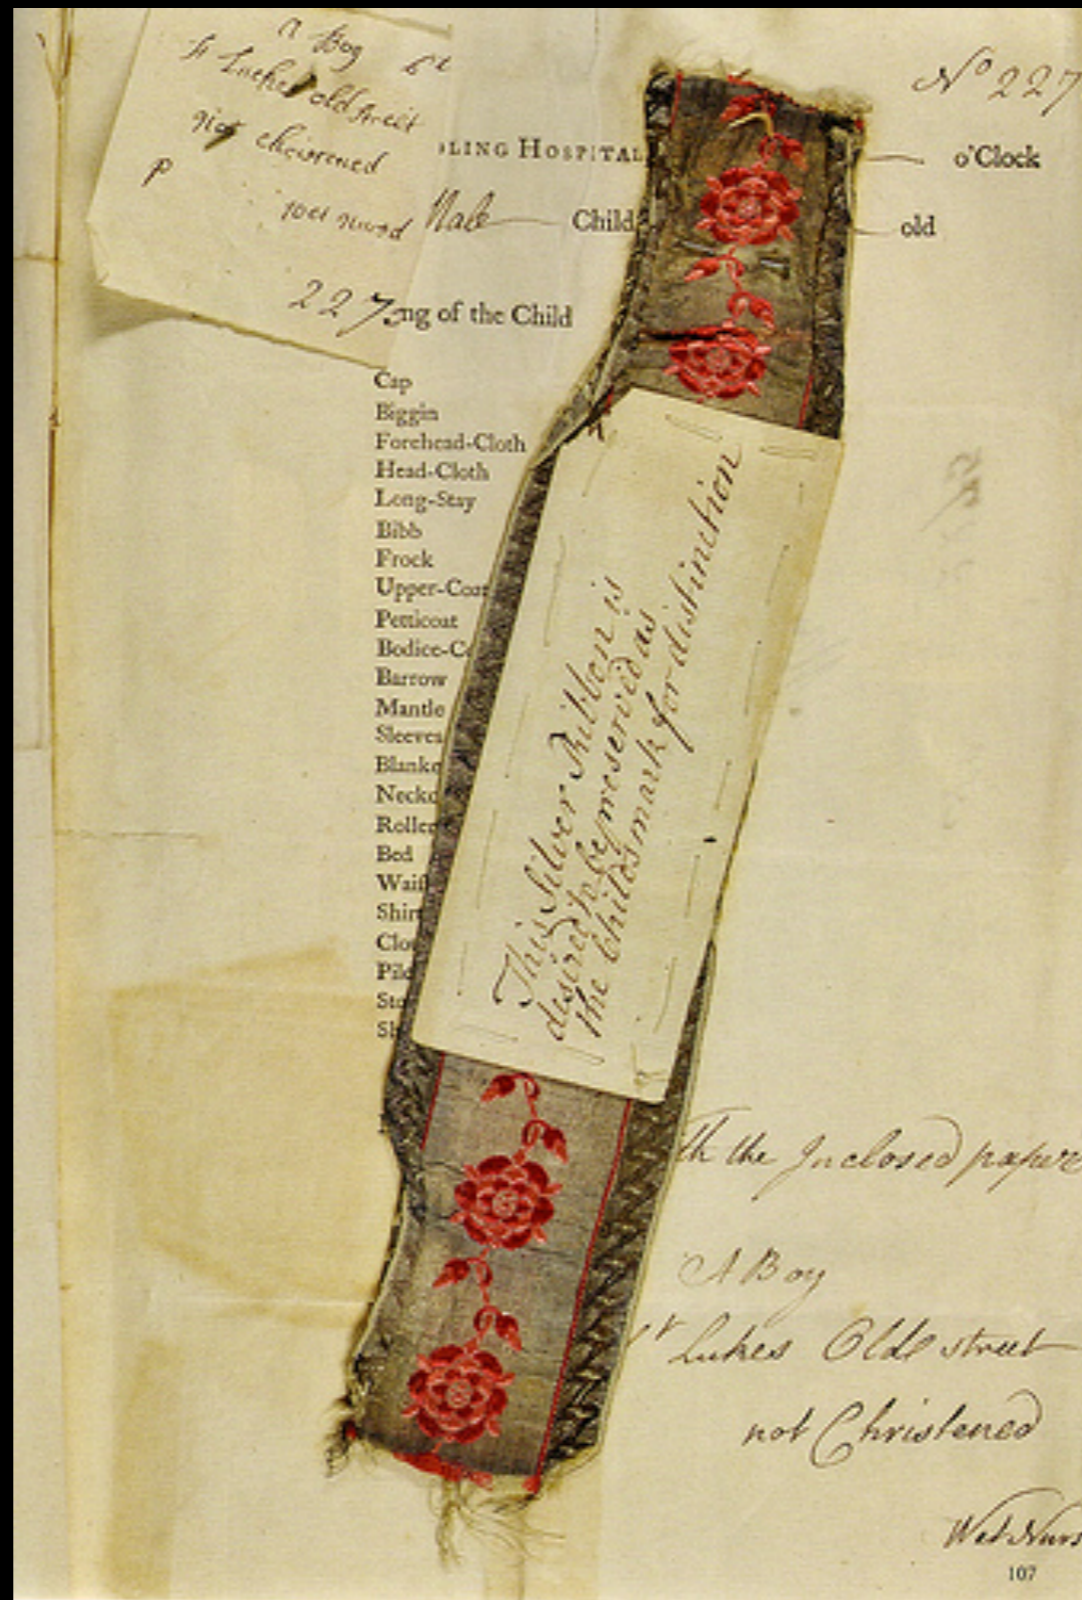 a Boy
St Lukes old street
not chirstened
P
wet nurs
227
No 227
LING HOSPITAL
o'Clock
Male Child
old
ng of the Child
Cap
Biggin
Forehead-Cloth
Head-Cloth
Long-Stay
Bibb
Frock
Upper-Coat
Petticoat
Bodice-C
Barrow
Mantle
Sleeves
Blanke
Neckc
Roller
Bed
Waist
Shirt
Clou
Pilc
Sto
Sh
This Silver Ribbon is
desired to be preserved as
the Childs mark for distinction
th the Inclosed paper
A Boy
St Lukes Olde street
not Christened
Wet Nurs
107